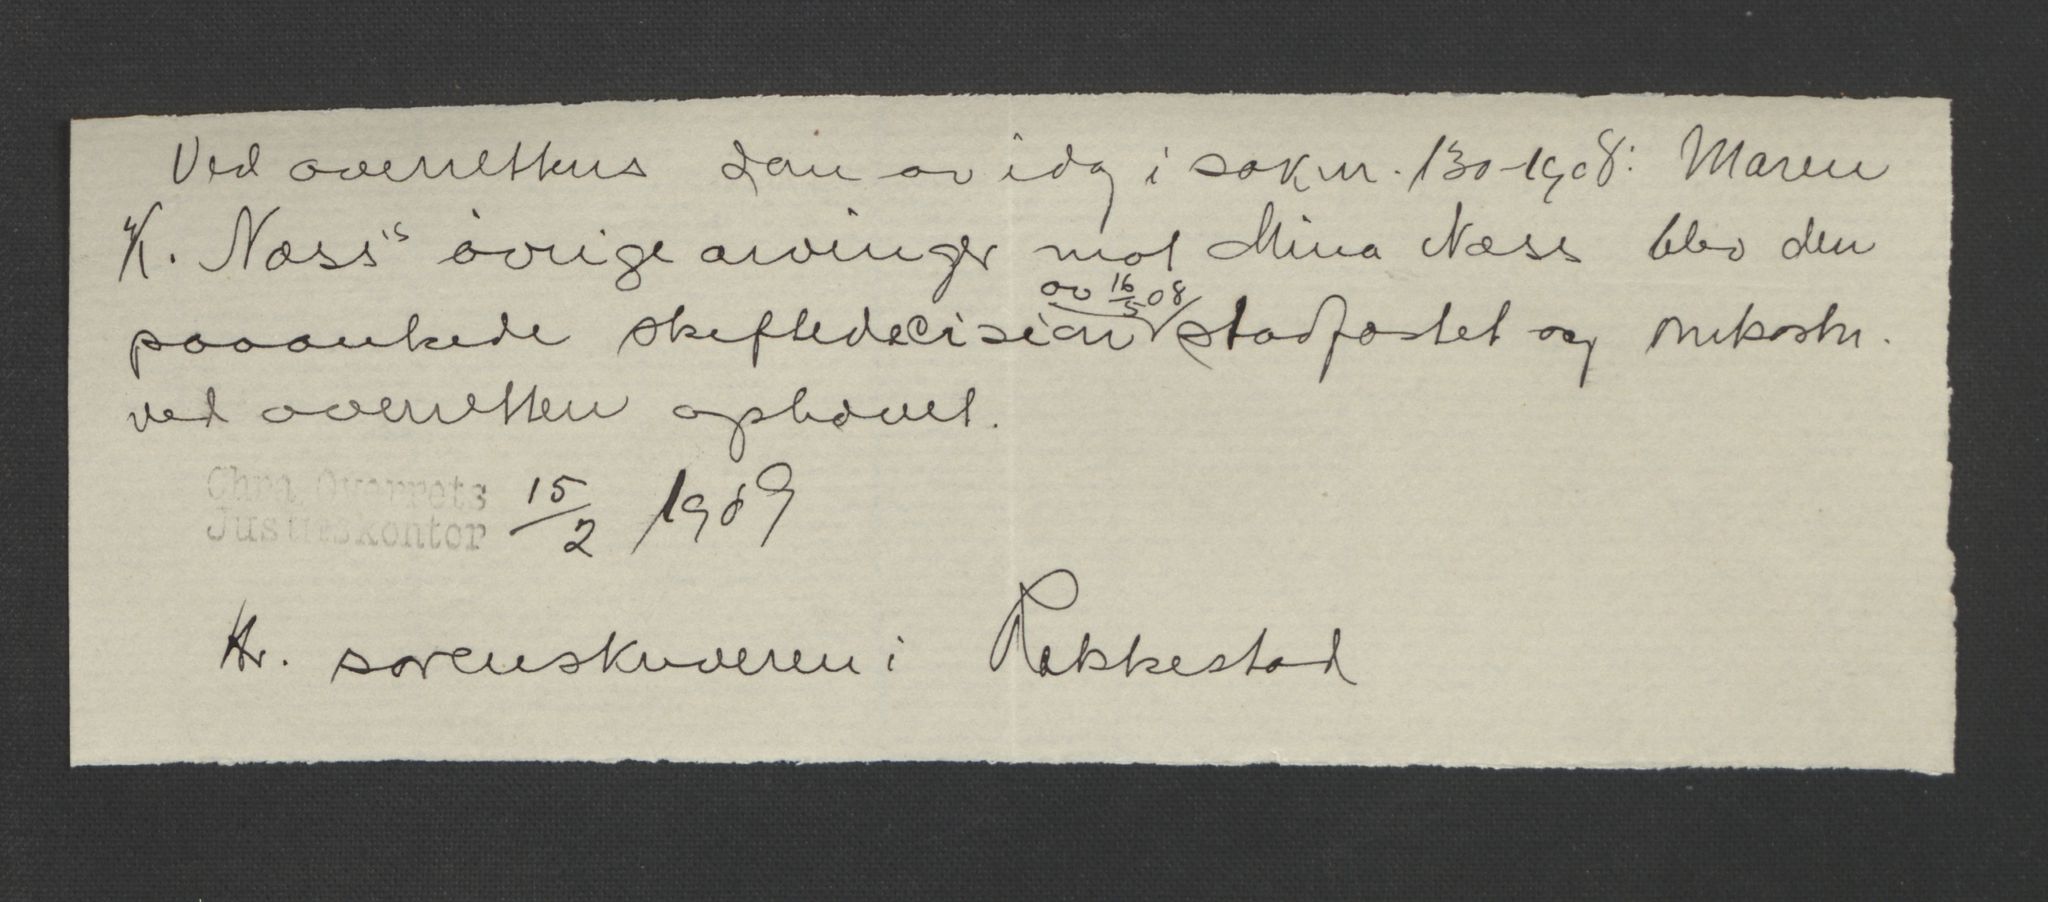 Ved overrettens dom av idag i sak nr. 130-1908: Maren
K. Næss's øvrige arvinger mot Mina Næss blev den
av 16/5 08
paaankede skiftedecision stadfæstet og omkostn.
ved overretten ophævet.
Chra Overrets
Justitskontor
15/2 1909
Hr. sorenskriveren i Rakkestad